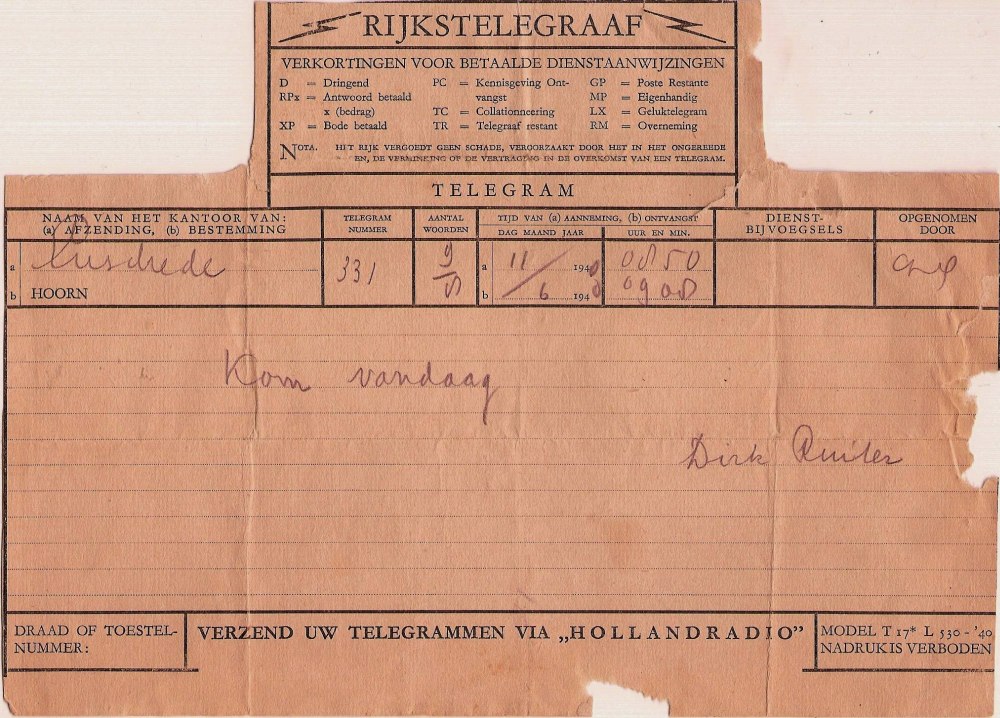 RIJKSTELEGRAAF
VERKORTINGEN VOOR BETAALDE DIENSTAANWIJZINGEN
D = Dringend PC = Kennisgeving Ont- GP = Poste Restante
RPx = Antwoord betaald vangst MP = Eigenhandig
x (bedrag) TC = Collationneering LX = Geluktelegram
XP = Bode betaald TR = Telegraaf restant RM = Overneming
NOTA. HET RIJK VERGOEDT GEEN SCHADE, VEROORZAAKT DOOR HET IN HET ONGEREEDE
EN, DE VERMINKING OF DE VERTRAGING IN DE OVERKOMST VAN EEN TELEGRAM.
TELEGRAM
NAAM VAN HET KANTOOR VAN: TELEGRAM AANTAL TIJD VAN (a) AANNEMING, (b) ONTVANGST DIENST- OPGENOMEN
(a) AFZENDING, (b) BESTEMMING NUMMER WOORDEN DAG MAAND JAAR UUR EN MIN. BIJVOEGSELS DOOR
a Enschede 331 9/8 a 11/ 194 0850
b HOORN b /6 194 0908
Kom vandaag
Dirk Ruiter
DRAAD OF TOESTEL- VERZEND UW TELEGRAMMEN VIA „HOLLANDRADIO” MODEL T 17* L 530 - '40
NUMMER: NADRUK IS VERBODEN